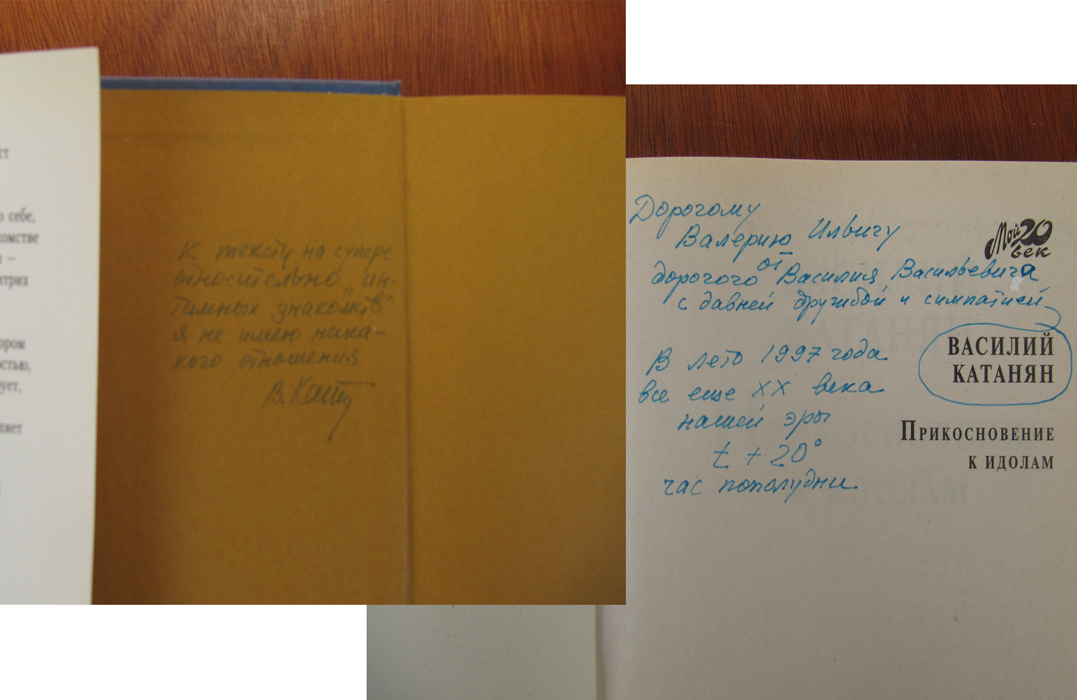 ст
о себе,
комстве
и –
нтрих
ором
стью,
ует,
ляет
К тексту на супере
относительно „ин-
тимных знакомств“
я не имею ника-
кого отношения
В. Кат
Дорогому
Валерию Ильичу
от
дорогого Василия Васильевича
с давней дружбой и симпатией
В лето 1997 года
все еще XX века
нашей эры
t + 20°
час пополудни
Мой 20
век
ВАСИЛИЙ
КАТАНЯН
ПРИКОСНОВЕНИЕ
К ИДОЛАМ